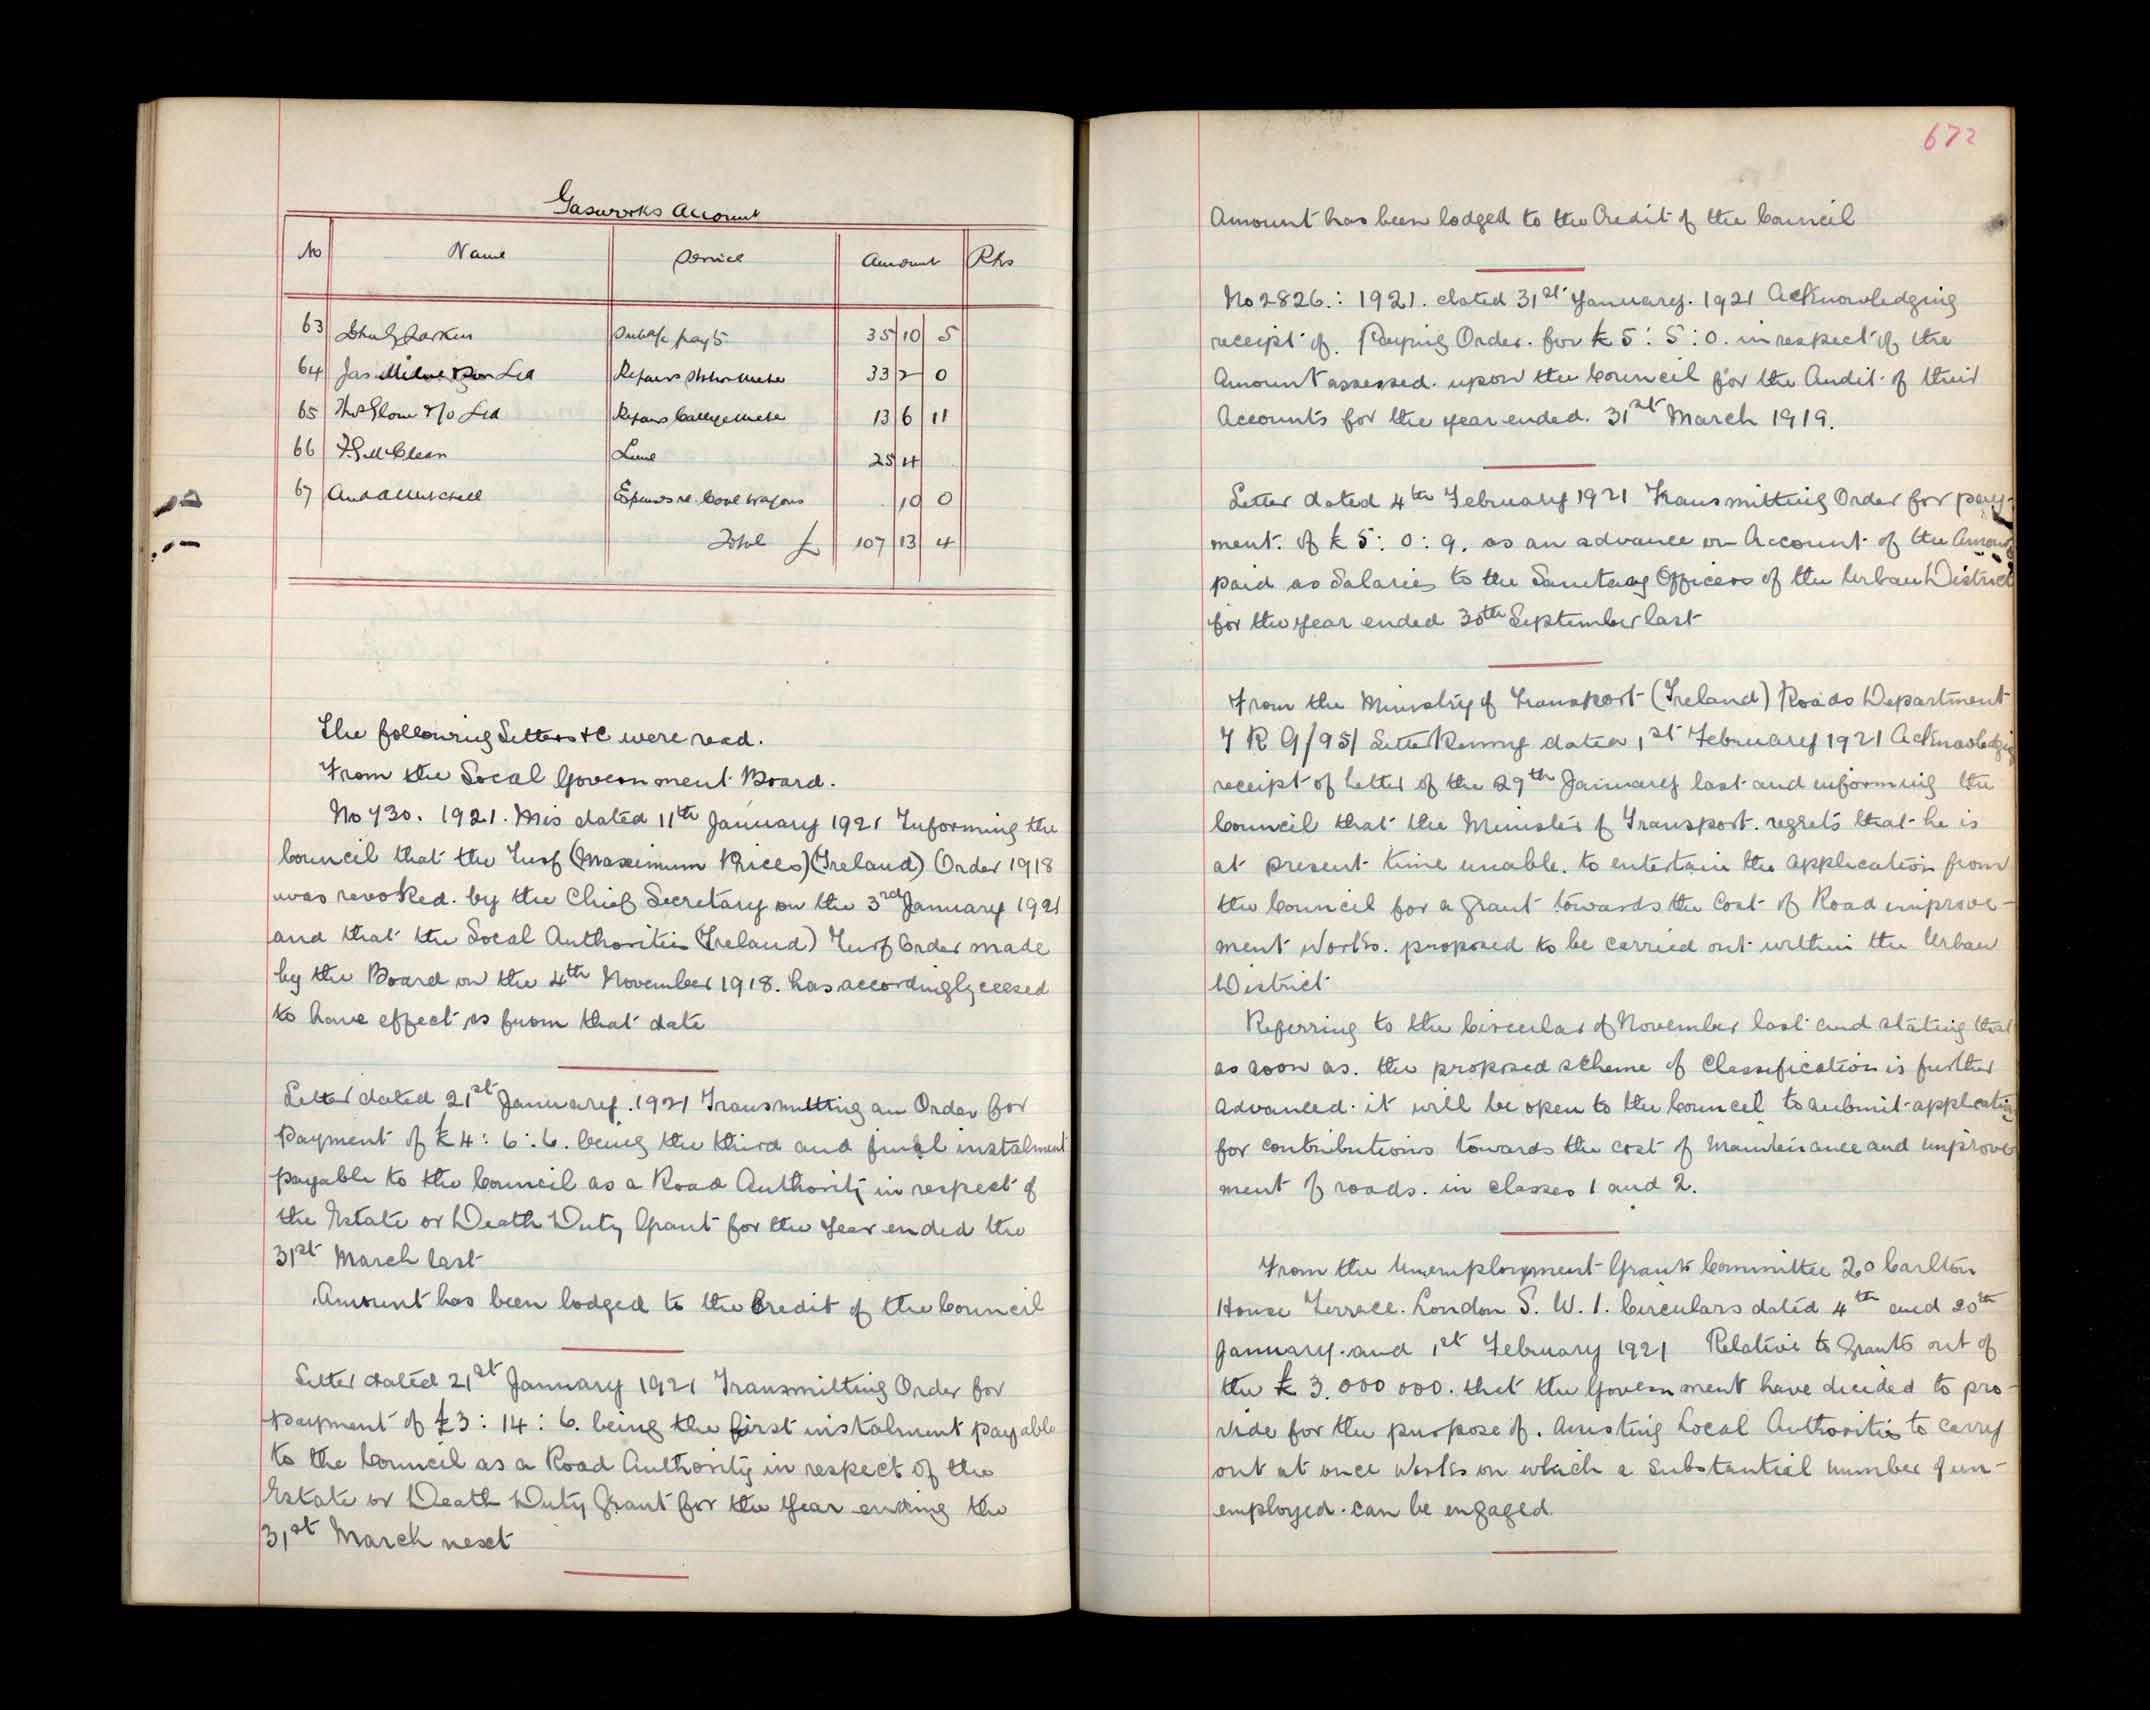 Gasworks Account
No Name Service Amount Rks
63 Larkin 35 10 5
64 Jas Milne Son Ltd Repairs Station Meter 33 2 0
65 Thos Glover & Co Ltd Repairs 13 6 11
66 McClean Lime 25 4
67 Expenses re. Coal Wagons 10 0
Total £ 107 13 4
The following Letters &C were read.
From the Local Government Board.
No 730. 1921. Mis dated 11th January 1921 Informing the
Council that the Turf (Maximum Prices) (Ireland) Order 1918
was revoked. by the Chief Secretary on the 3rd January 1921
and that the Local Authorities (Ireland) Turf Order made
by the Board on the 4th November 1918. has accordingly ceased
to have effect as from that date
Letter dated 21st January. 1921 Transmitting an Order for
Payment of £4 : 6 : 6. being the third and final instalment
payable to the Council as a Road Authority in respect of
the Estate or Death Duty Grant for the Year ended the
31st March last
Amount has been lodged to the Credit of the Council
Letter dated 21st January 1921 Transmitting Order for
Payment of £3 : 14 : 6. being the first instalment payable
to the Council as a Road Authority in respect of the
Estate or Death Duty Grant for the Year ending the
31st March next
672
Amount has been lodged to the Credit of the Council
No 2826. : 1921. dated 31st January. 1921 Acknowledging
receipt of. Paying Order. for £5 : 5 : 0. in respect of the
Amount assessed. upon the Council for the Audit of their
Accounts for the year ended. 31st March 1919.
Letter dated 4th February 1921 Transmitting Order for pay-
ment. of £5 : 0 : 9. as an advance on Account of the Amount
paid as Salaries to the Sanitary Officers of the Urban District
for the Year ended 30th September last
From the Ministry of Transport (Ireland) Roads Department
Letter dated 1st February 1921 Acknowledging
receipt of letter of the 29th January last and informing the
Council that the Minister of Transport. regrets that he is
at present time unable. to entertain the application from
the Council for a grant towards the Cost of Road improve-
ment Works. proposed to be carried out within the Urban
District
Referring to the Circular of November last and stating that
as soon as. the proposed scheme of Classification is further
advanced. it will be open to the Council to submit application
for contributions towards the cost of Maintenance and improve
ment of roads. in classes 1 and 2.
From the Unemployment Grants Committee 20 Carlton
House Terrace. London S. W. 1. Circulars dated 4th and 20th
January. and 1st February 1921 Relative to Grants out of
the £ 3.000 000. that the Government have decided to pro-
vide for the purpose of. Assisting Local Authorities to carry
out at once Works on which a substantial number of un-
employed. can be engaged